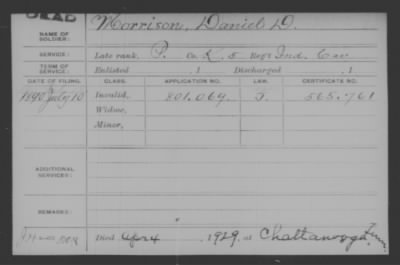 DEAD
NAME OF SOLDIER: Morrison, Daniel D.
SERVICE: Late rank, P. Co. K, 5 Reg't Ind. Cav.
TERM OF SERVICE: Enlisted , 1 Discharged , 1
DATE OF FILING. CLASS. APPLICATION NO. LAW. CERTIFICATE NO.
1890 July 10 Invalid, 801.069. J. 565.761
Widow,
Minor,
ADDITIONAL SERVICES:
REMARKS:
Died Apr 4, 1929, at Chattanooga Tenn.